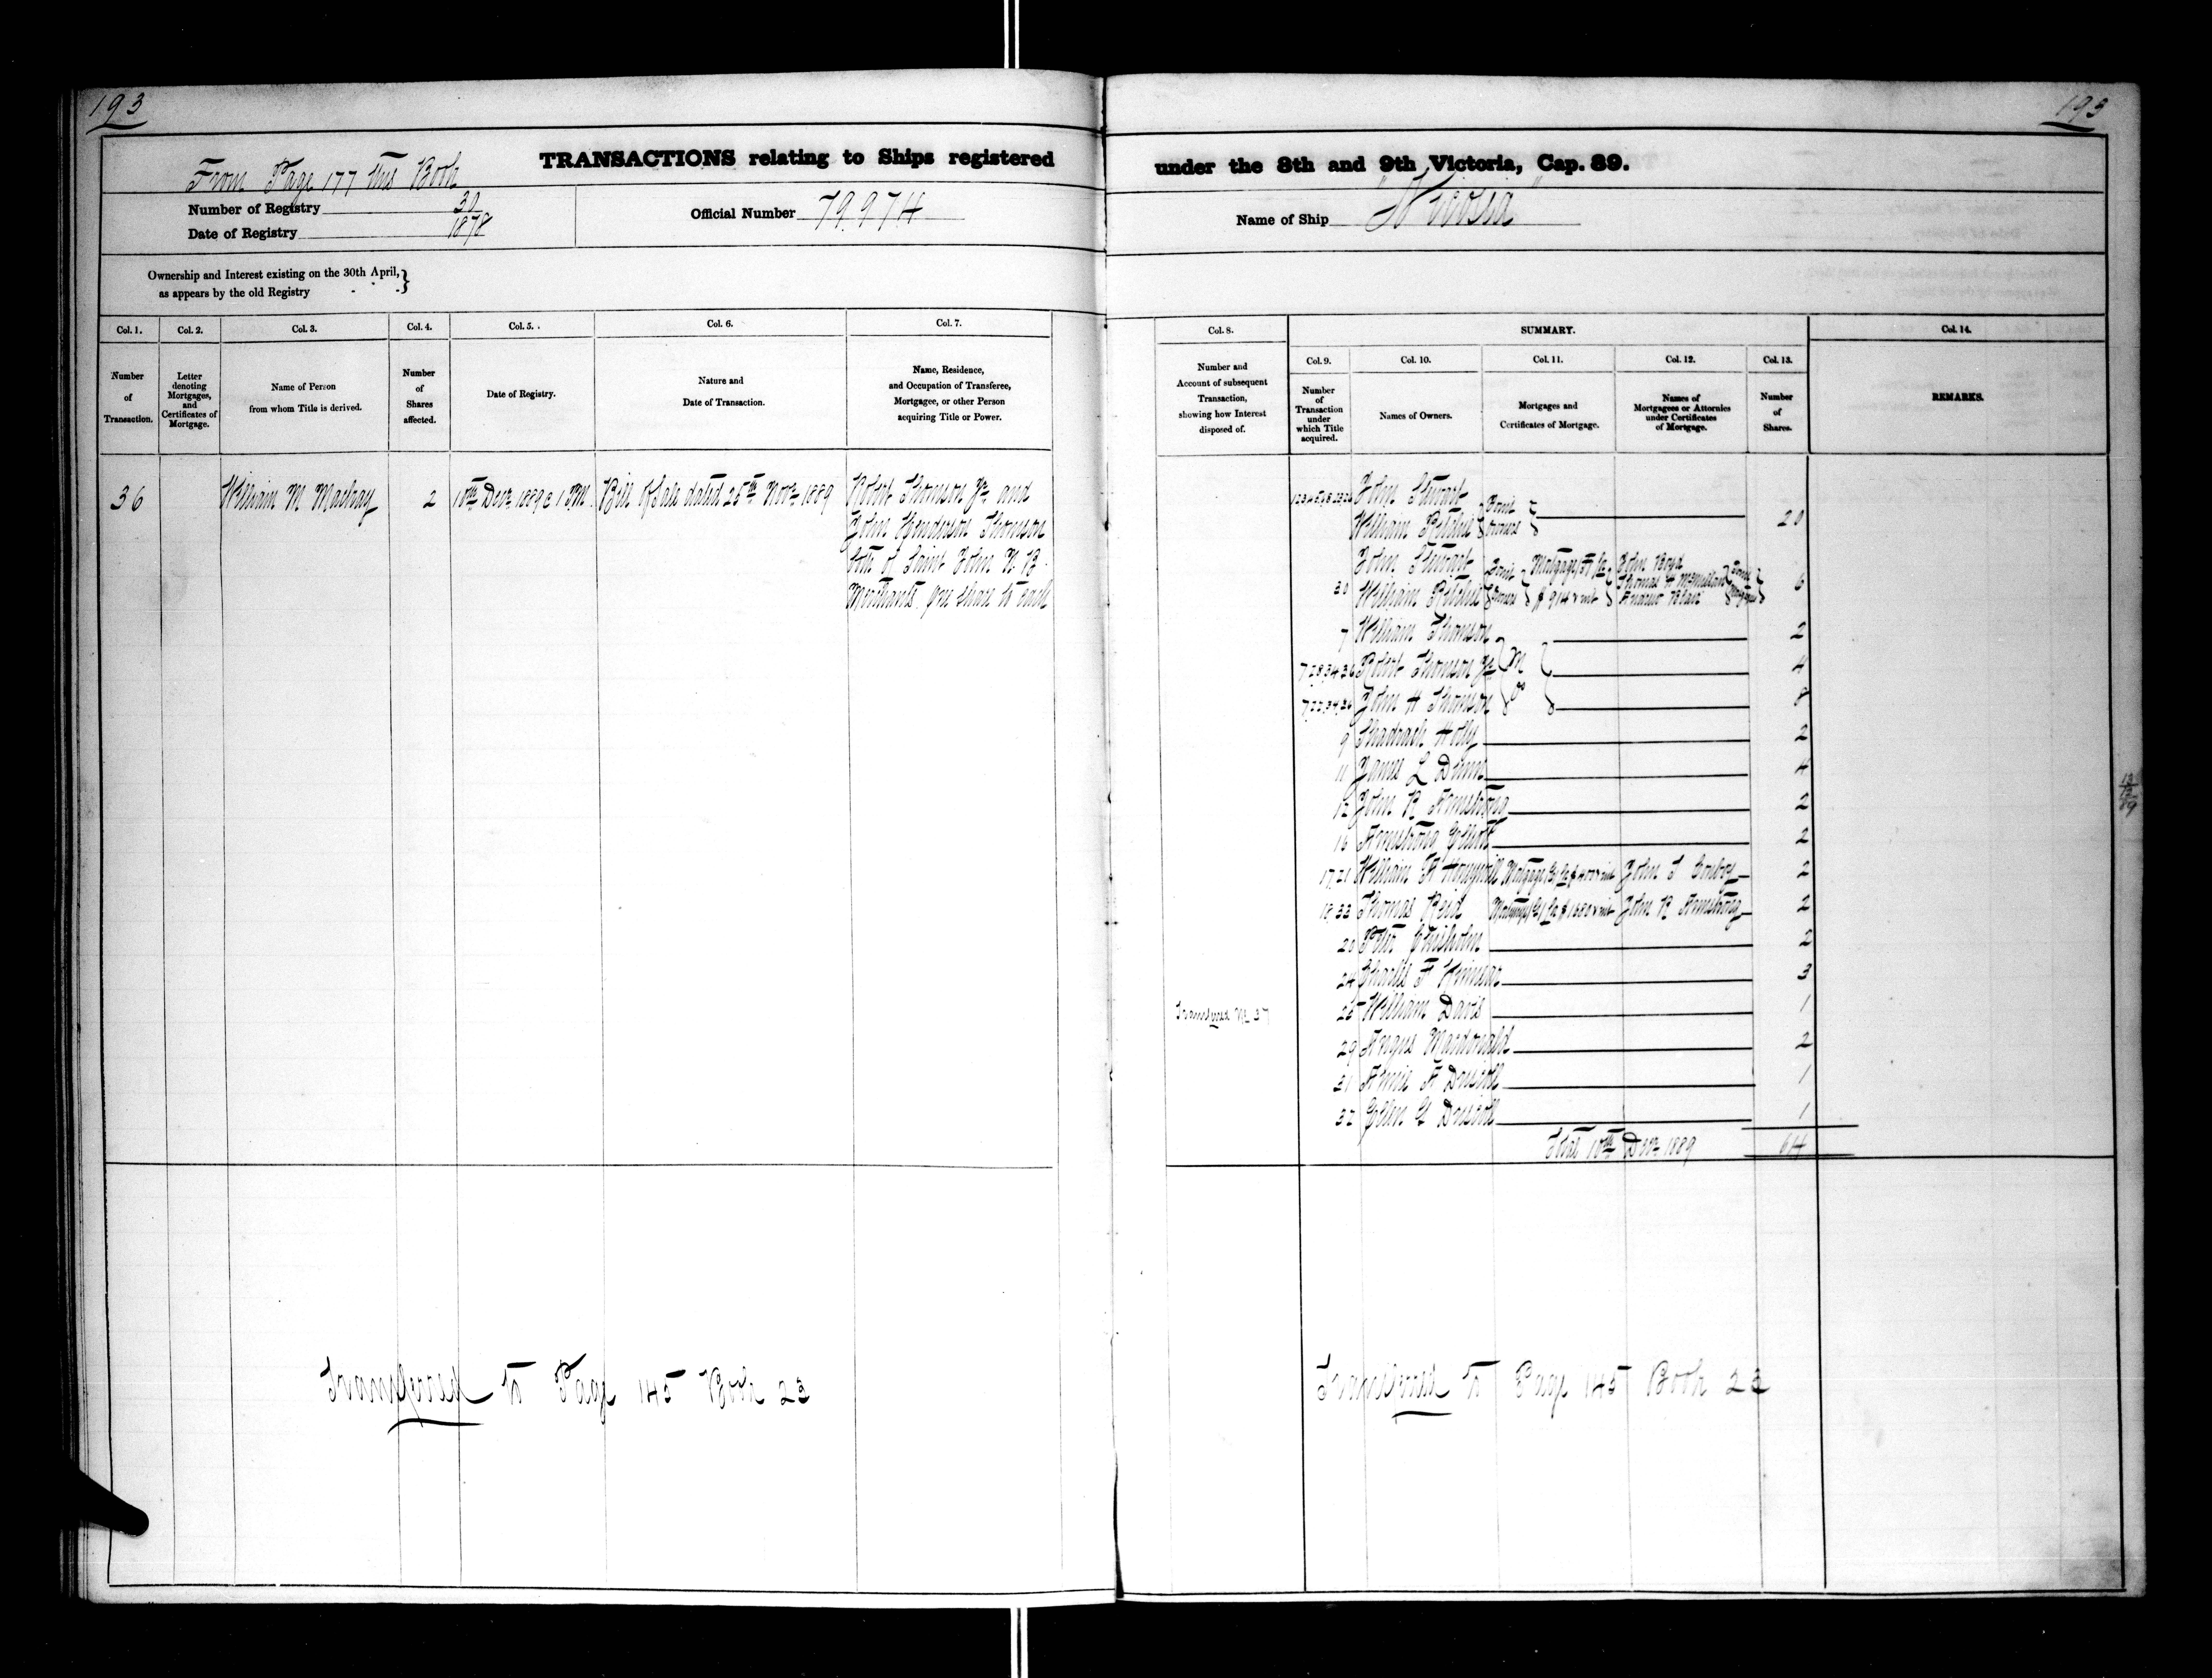 193
193
TRANSACTIONS relating to Ships registered under the 8th and 9th Victoria, Cap. 89.
From Page 177 this Book
Number of Registry 30
Date of Registry 1878
Official Number 79.974
Name of Ship "Nicosia"
Ownership and Interest existing on the 30th April,
as appears by the old Registry
Col. 1.
Number of Transaction.
Col. 2.
Letter denoting Mortgages, and Certificates of Mortgage.
Col. 3.
Name of Person from whom Title is derived.
Col. 4.
Number of Shares affected.
Col. 5.
Date of Registry.
Col. 6.
Nature and Date of Transaction.
Col. 7.
Name, Residence, and Occupation of Transferee, Mortgagee, or other Person acquiring Title or Power.
Col. 8.
Number and Account of subsequent Transaction, showing how Interest disposed of.
SUMMARY.
Col. 9.
Number of Transaction under which Title acquired.
Col. 10.
Names of Owners.
Col. 11.
Mortgages and Certificates of Mortgage.
Col. 12.
Names of Mortgagees or Attornies under Certificates of Mortgage.
Col. 13.
Number of Shares.
Col. 14.
REMARKS.
36 William M Mackay 2 10th Decr 1889 @ 1 P.M. Bill of Sale dated 25th Novr 1889 Robert Thomson Jr and
John Henderson Thomson
both of Saint John N.B.
Merchants. One share to each
John Stewart
William Ritchie Joint Owners 20
John Stewart John Boyd
30 William Ritchie Joint Owners Mortgage Thomas H McMillan 6
Andrew Blair
7 William Thomson 2
Robert Thomson Jr 4
John H Thomson 8
9 Shadrach Holly 2
11 James L Dunn 4
12 John R Armstrong 2
16 Armstrong Elliott 2
17.21 William H Honeywill Mortgage John S 2
18.33 Thomas Reid Mortgage John R Armstrong 2
20 Peter Chisholm 2
24 Charles F Kinnear 3
25 William Davis 1
29 Angus Macdonald 2
31 Annie A Driscoll 1
32 Ellen G Driscoll 1
Total 10th Decr 1889 64
12
12
89
Transferred to Page 145 Book 23
Transferred to Page 145 Book 23